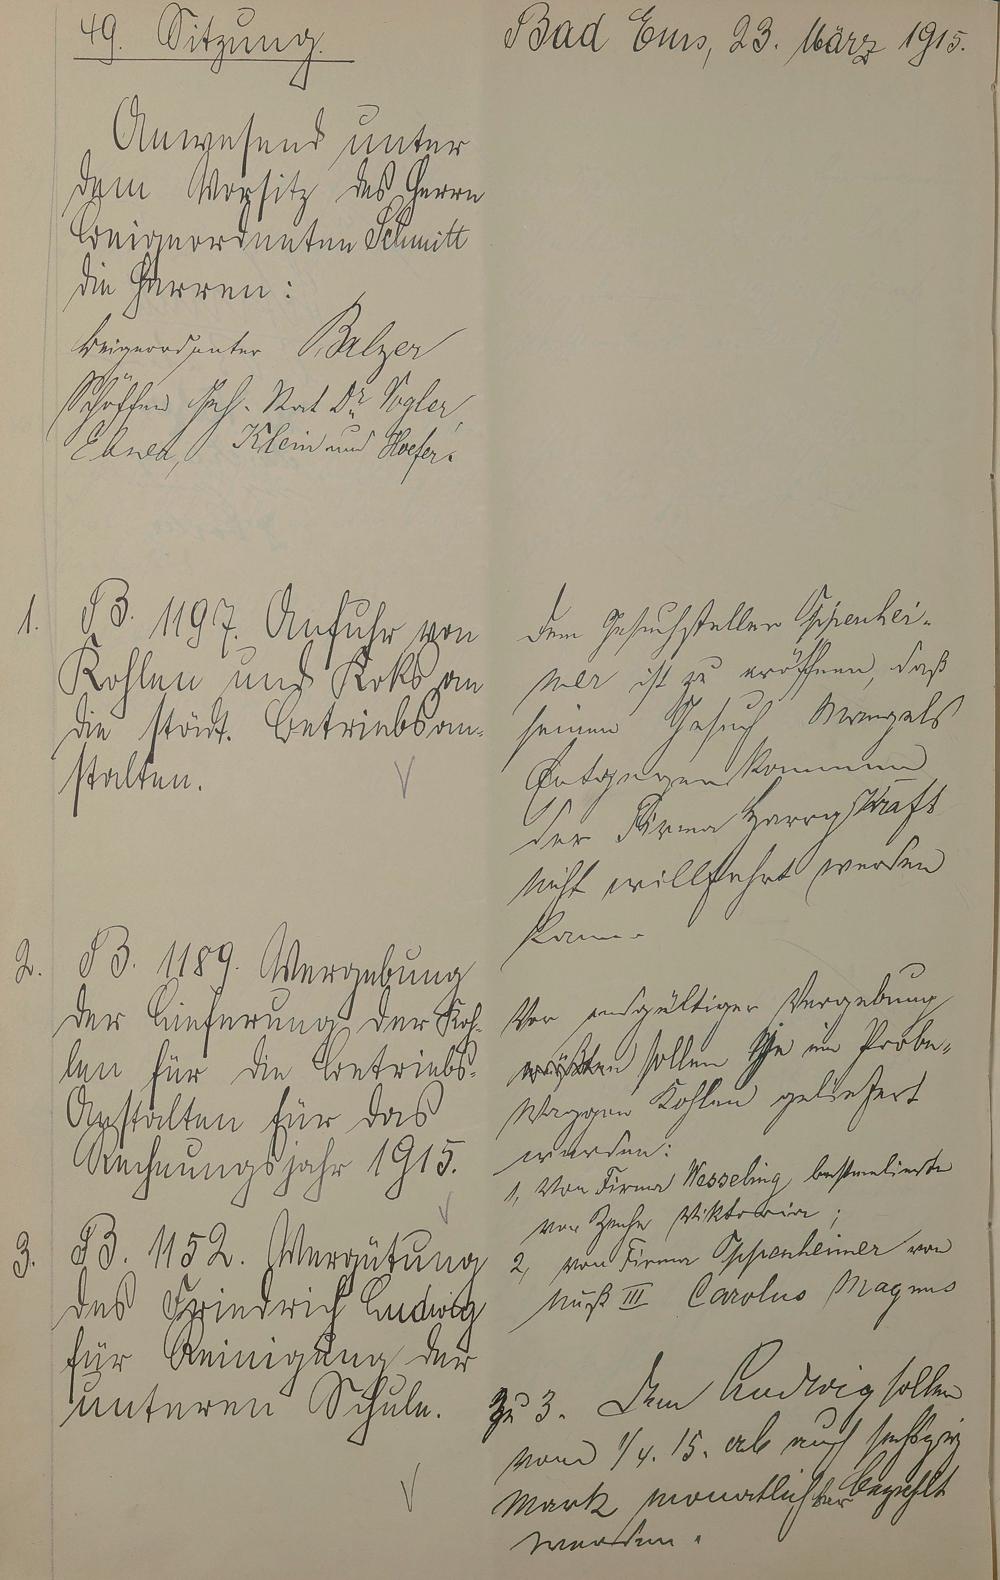 49. Sitzung.
Bad Ems, 23. März 1915.
Anwesend unter
dem Vorsitz des Herrn
Beigeordneten Schmitt
die Herren:
Beigeordneter Balzer
Schöffen Geh. Rat Dr. Vogler,
Klein und Hoefer.
1. B. 1197. Anfuhr von
Kohlen und Koks an
die städt. Betriebsan-
stalten.
Dem Gesuchsteller Oppenhei-
mer ist zu eröffnen, daß
seinem Gesuch Mangels
Entgegenkommen
der Firma Harry Kraft
nicht willfahrt werden
kann.
2. B. 1189. Vergebung
der Lieferung der Koh-
len für die Betriebs-
Anstalten für das
Rechnungsjahr 1915.
Vor endgültiger Vergebung
sollen je ein Probe-
Waggon Kohlen geliefert
werden:
1, Von Firma Wesseling bestmelierte
von Zeche Viktoria;
2, von Firma Oppenheimer von
Nuß III Carolus Magnus
3. B. 1152. Vergütung
des Friedrich Ludwig
für Reinigung der
unteren Schule.
Zu 3. Dem Ludwig sollen
vom 1/4. 15. ab auch sechszig
Mark monatlich bezahlt
werden.